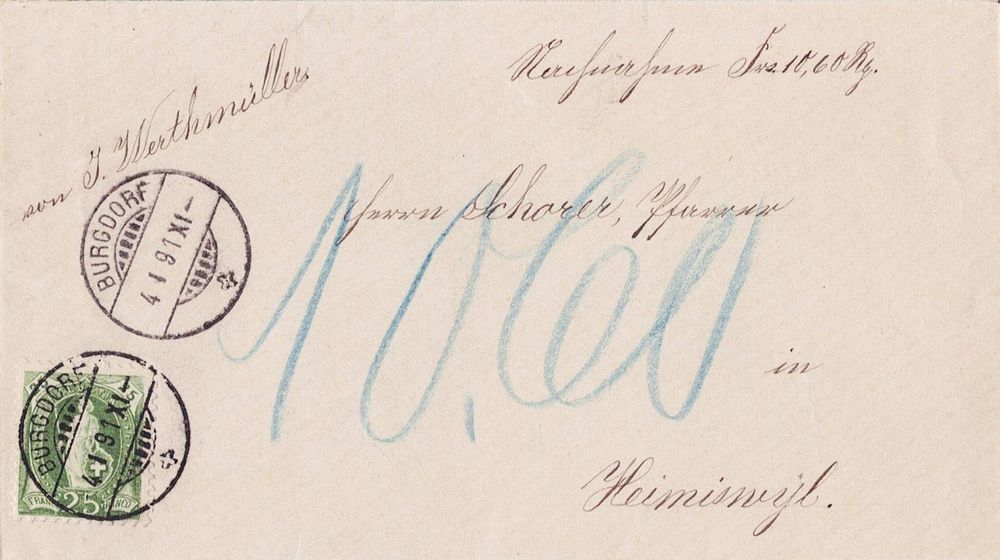 Nachnahme Frs. 10,60 Rp.
von J. Werthmüller
BURGDORF
4 I 91 XI–
Herrn Schorer, Pfarrer
10.60
in
Heimiswyl.
BURGDORF
4 I 91 XI–
25
FRANCO 25 FRANCO